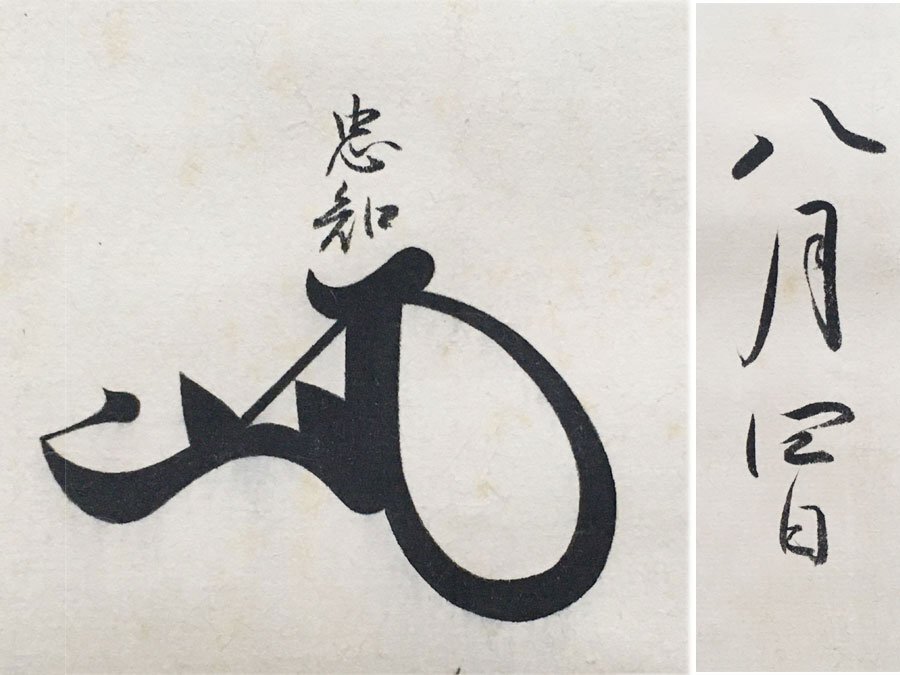 八月四日
忠知